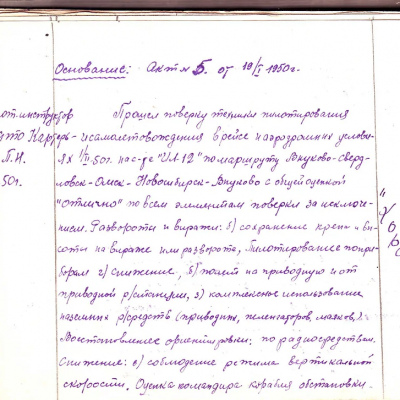 Основание: Акт № 5. от 19/I 1950г.
Прошел поверку техники пилотирования
и самолетовождения в рейсе на грозрамных условь-
ях 1/II-50г. на с-те "ИЛ-12" по маршруту Внуково-Сверд-
ловск-Омск-Новосибирск-Внуково с общей оценкой
"отлично" по всем элементам поверки за исключе-
нием. Развороты и виражи: б) сохранение крена и вы-
соты на вираже или развороте, Пилотирование по при-
борам г) снижение, б) полет на приводную и от
приводной р/станции, з) комплексное использование
наземных р/средств (приводных, пеленгаторов, маяков).
Восстановление ориентировки: по радиосредствам.
Снижение: в) соблюдение режима вертикальной
скорости. Оценка командира корабля обстановки-
от.инструктор
П.И.
50г.